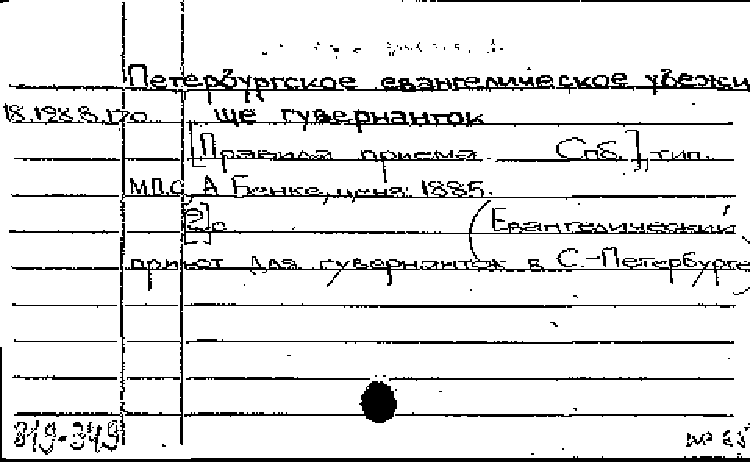 Петербургское евангелическое убежи
18.198.8.170 ще гувернанток
[Правила приема. Спб.], тип.
М.П.С. А Бенке, ценз. 1885.
[2] с.
(Евангелический
приют для гувернанток в С.-Петербурге)
819-349